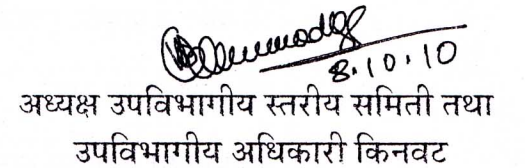 8.10.10
अध्यक्ष उपविभागीय स्तरीय समिती तथा
उपविभागीय अधिकारी किनवट